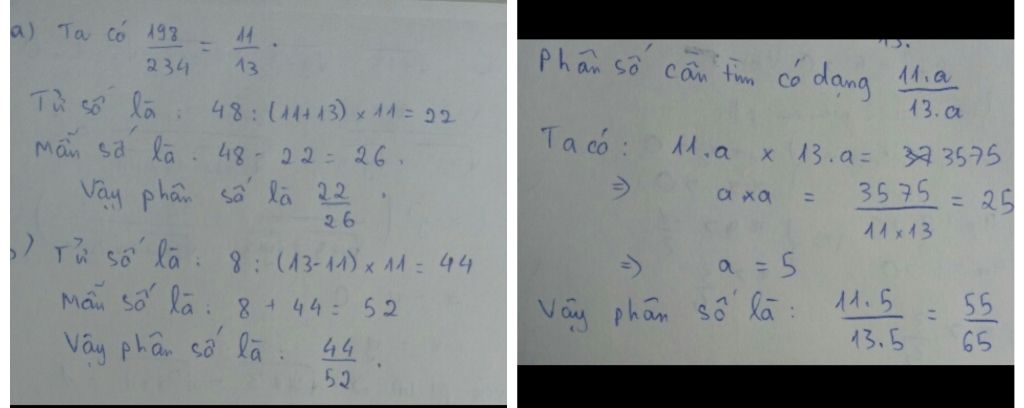 a) Ta có 198/234 = 11/13 .
Tử số là : 48 : (11+13) × 11 = 22
Mẫu số là . 48 - 22 = 26 .
Vậy phân số là 22/26 .
) Tử số là : 8 : (13-11) × 11 = 44
Mẫu số là : 8 + 44 = 52
Vậy phân số là : 44/52 .
Phân số cần tìm có dạng 11.a/13.a
Ta có : 11.a × 13.a = 3575
=> a×a = 3575/11×13 = 25
=> a = 5
Vậy phân số là : 11.5/13.5 = 55/65